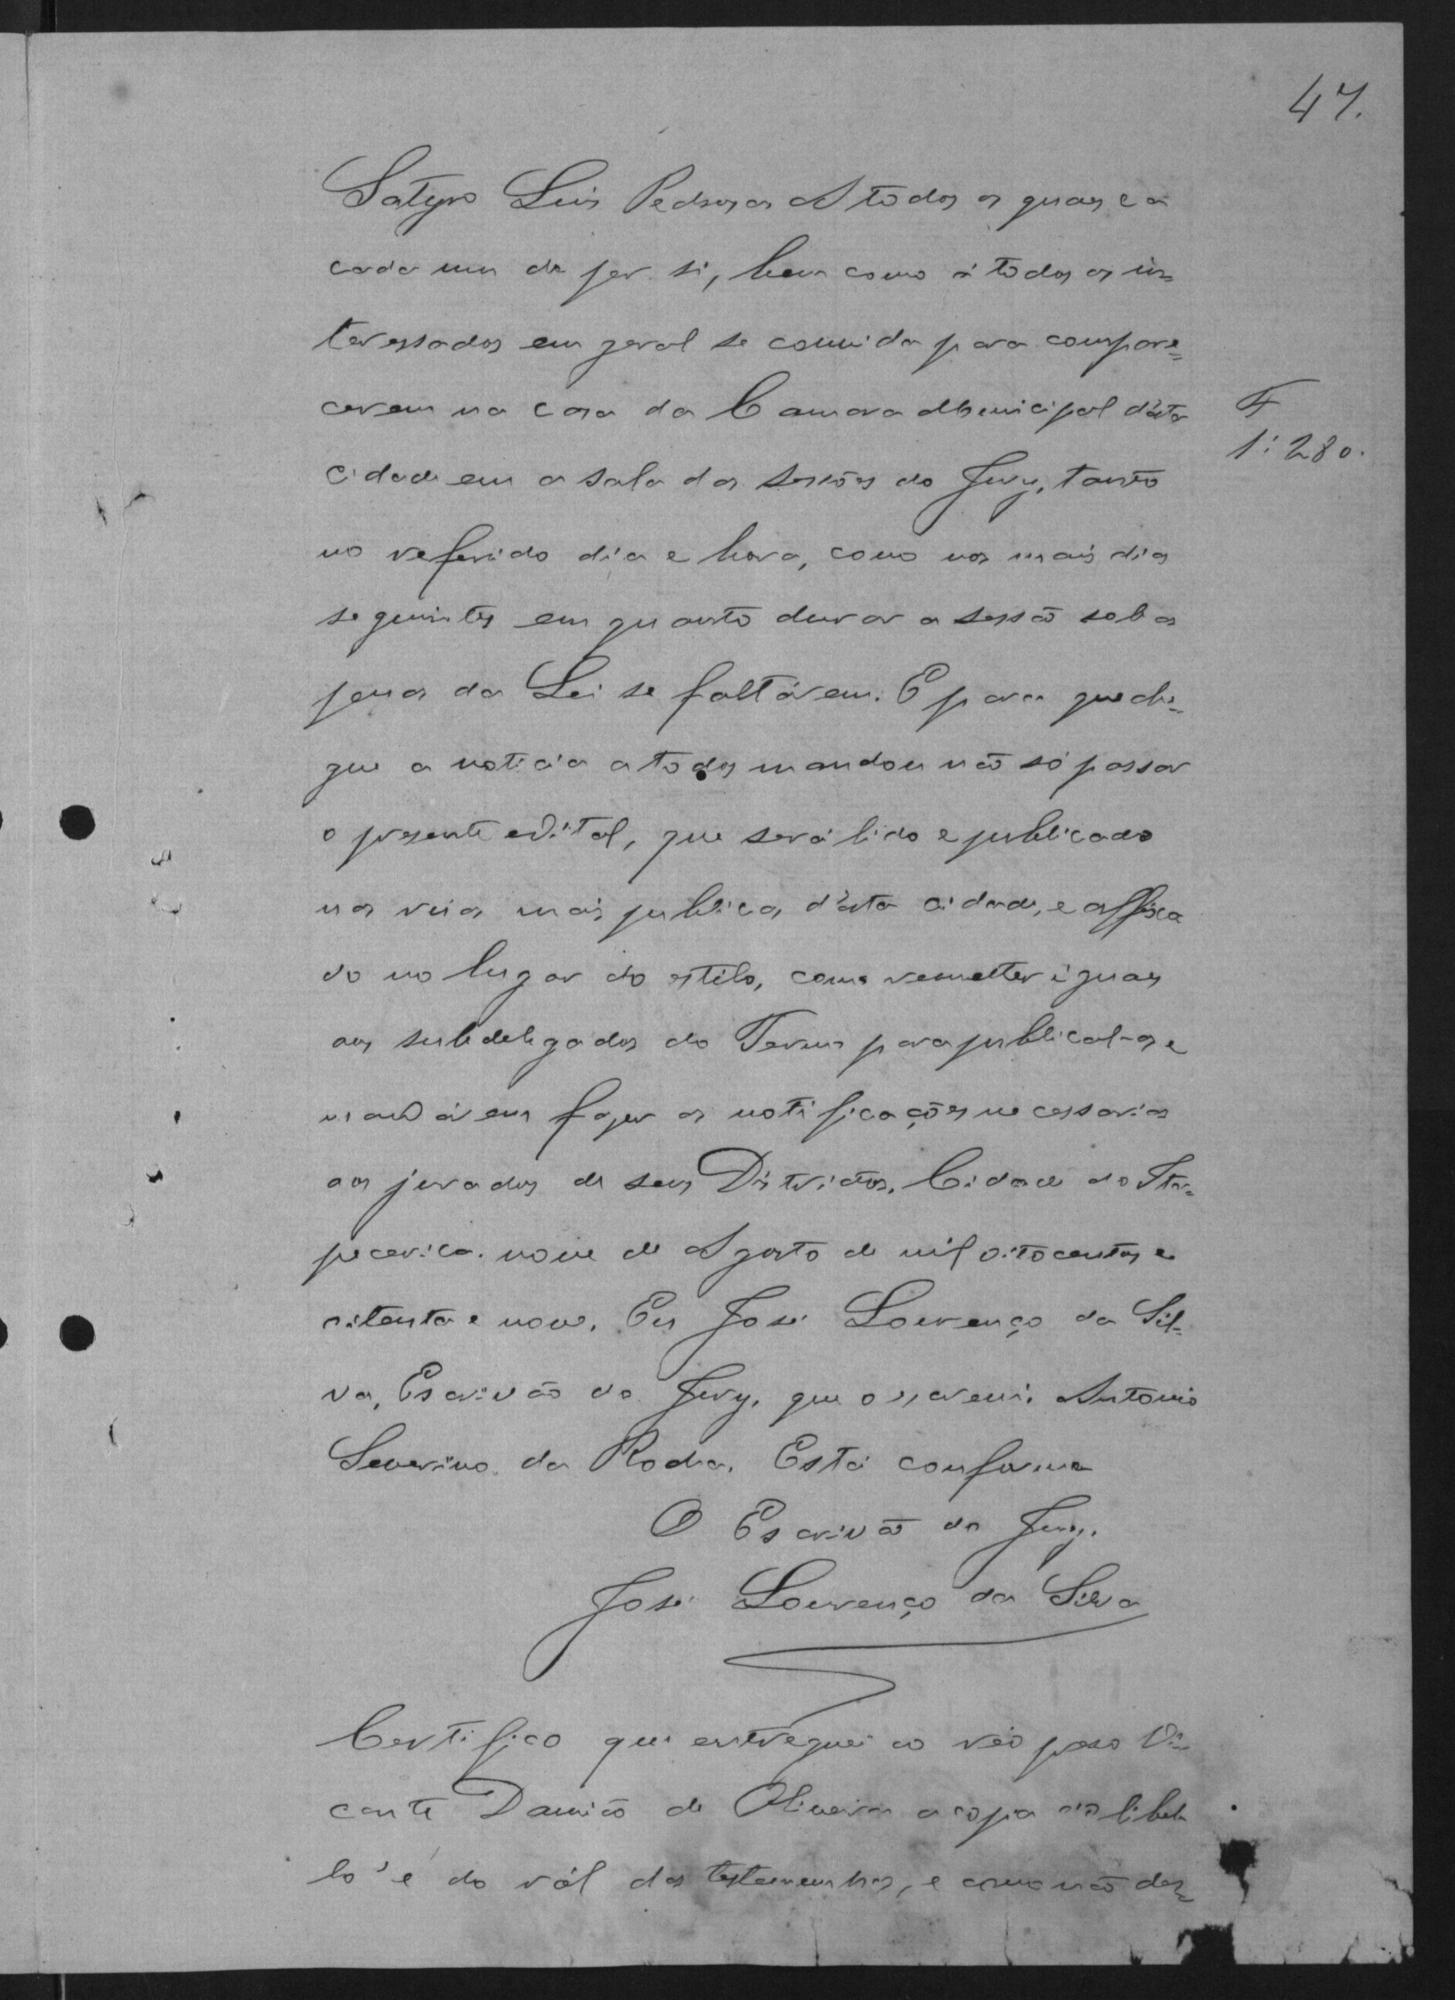 47.
Satyro Luis Pedrosa A todos os quaes e a
cada um de per si, bem como á todos os in=
teressados em geral se convida para compare=
cerem na casa da Camara Municipal d'esta
F
1:280.
cidade em a sala das sessões do Jury, tanto
no referido dia e hora, como nos mais dias
seguintes em quanto durar a sessão sob as
penas da Lei se faltárem. E para que che=
gue a noticia a todos mandou não só passar
o presente edital, que será lido e publicado
nas ruas mais publicas d'esta cidade, e affixa
do no lugar do estilo, como remetter iguaes
aos subdelegados do Termo para publical-os e
mandárem fazer as notificações necessarias
aos jurados de seus Districtos. Cidade do Ita=
pecerica. nove de Agosto de mil oitocentos e
oitenta e nove. Eu José Lourenço da Sil-
va, Escrivão do Jury, que o escrevi. Antonio
Severino da Rocha. Está conforme
O Escrivão do Jury.
José Lourenço da Silva
Certifico que entreguei ao réo preso Vi=
cente Damião de Oliveira a copia do libel
lo e do ról das testemunhas, e como não